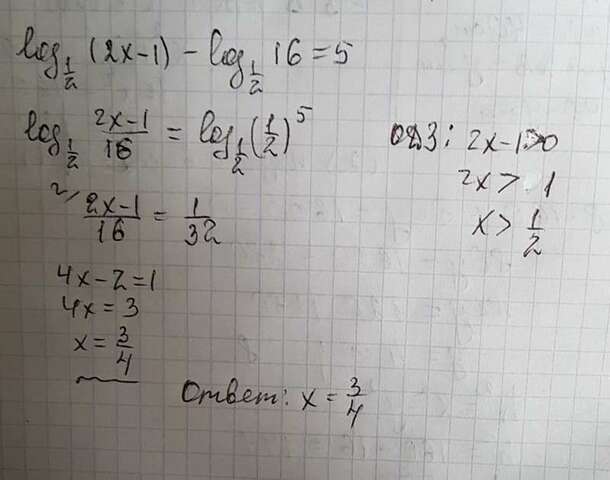 log_{1/2} (2x-1) - log_{1/2} 16 = 5
log_{1/2} \frac{2x-1}{16} = log_{1/2} (\frac{1}{2})^5
2/ \frac{2x-1}{16} = \frac{1}{32}
4x-2=1
4x=3
x=\frac{3}{4}
ОДЗ: 2x-1>0
2x > 1
x > \frac{1}{2}
Ответ: x = \frac{3}{4}